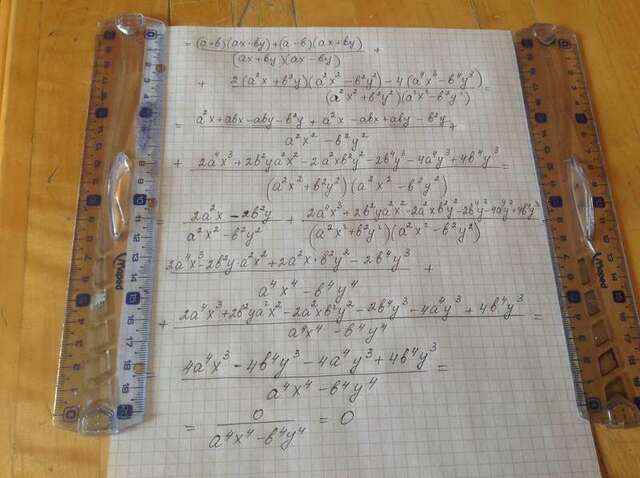 = (a+b)(ax-by)+(a-b)(ax+by) / (ax+by)(ax-by) +
+ 2(a²x+b²y)(a²x²-b²y²)-4(a⁴x³-b⁴y³) / (a²x²+b²y²)(a²x²-b²y²) =
= a²x+abx-aby-b²y+a²x-abx+aby-b²y / a²x²-b²y² +
+ 2a⁴x³+2b²ya²x²-2a²xb²y²-2b⁴y³-4a⁴x³+4b⁴y³ / (a²x²+b²y²)(a²x²-b²y²) =
= 2a²x-2b²y / a²x²-b²y² + 2a⁴x³+2b²ya²x²-2a²xb²y²-2b⁴y³-4a⁴y³+4b⁴y³ / (a²x²+b²y²)(a²x²-b²y²)
2a⁴x³-2b²y·a²x²+2a²x·b²y²-2b⁴y³ / a⁴x⁴-b⁴y⁴ +
+ 2a⁴x³+2b²ya²x²-2a²xb²y²-2b⁴y³-4a⁴y³+4b⁴y³ / a⁴x⁴-b⁴y⁴ =
4a⁴x³-4b⁴y³-4a⁴y³+4b⁴y³ / a⁴x⁴-b⁴y⁴ =
= 0 / a⁴x⁴-b⁴y⁴ = 0
Maped
Maped